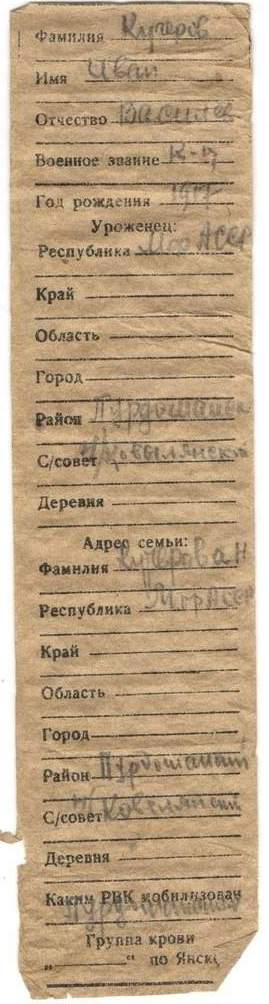 Фамилия Кучеров
Имя Иван
Отчество Василев
Военное звание К-ц
Год рождения 1917
Уроженец:
Республика Мор АССР
Край
Область
Город
Район Пурдошанск
С/совет Ковылянский
Деревня
Адрес семьи:
Фамилия Кучерова Н
Республика МорАССР
Край
Область
Город
Район Пурдошанский
С/совет
Деревня
Каким РВК мобилизован
Группа крови
„ “ по Янск